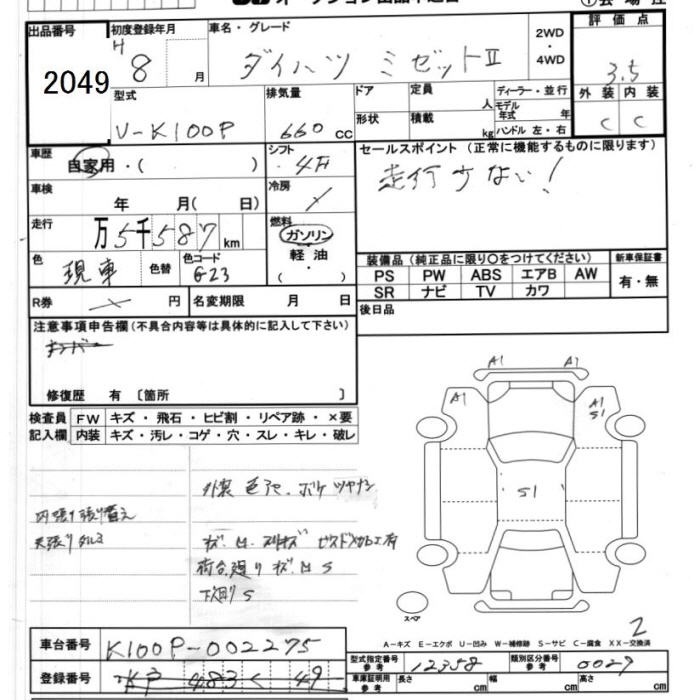 出品番号 初度登録年月 車名・グレード 評価点
2049 H 8 月 ダイハツ ミゼットII 2WD・4WD 3.5
型式 排気量 ドア 定員 人 ディーラー・並行 外装 内装
V-K100P 660 cc 形状 積載 kg モデル年式 年 ハンドル 左・右 C C
車歴 自家用・( ) シフト 4F セールスポイント (正常に機能するものに限ります)
車検 年 月( 日) 冷房 走行少ない!
走行 万5千587km 燃料 ガソリン 軽油 ( ・ )
色 現車 色替 色コード G23
装備品 (純正品に限り○をつけてください) 新車保証書
PS PW ABS エアB AW 有・無
SR ナビ TV カワ
R券 円 名変期限 月 日 後日品
注意事項申告欄(不具合内容等は具体的に記入して下さい)
修復歴 有 〔箇所 〕
検査員 FW キズ・飛石・ヒビ割・リペア跡・×要
記入欄 内装 キズ・汚レ・コゲ・穴・スレ・キレ・破レ
A1 A1
A1 A1
S1
S1
外装 色アセ、ボケ ツヤナシ
内張り張り替え
天張りタルミ
荷台廻り キズ M S
下廻り S
スペア
2
A-キズ E-エクボ U-凹み W-補修跡 S-サビ C-腐食 XX-交換済
車台番号 K100P-002275
型式指定番号 参考 12358 類別区分番号 参考 0027
登録番号 483 く 49
車庫証明用 参考 長さ cm 幅 cm 高さ cm